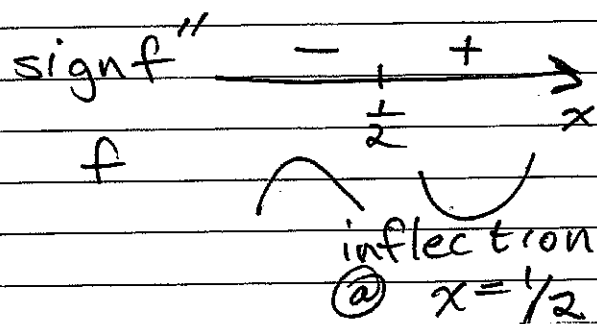 sign f″ − +
1/2 x
f
inflection
@ x = 1/2